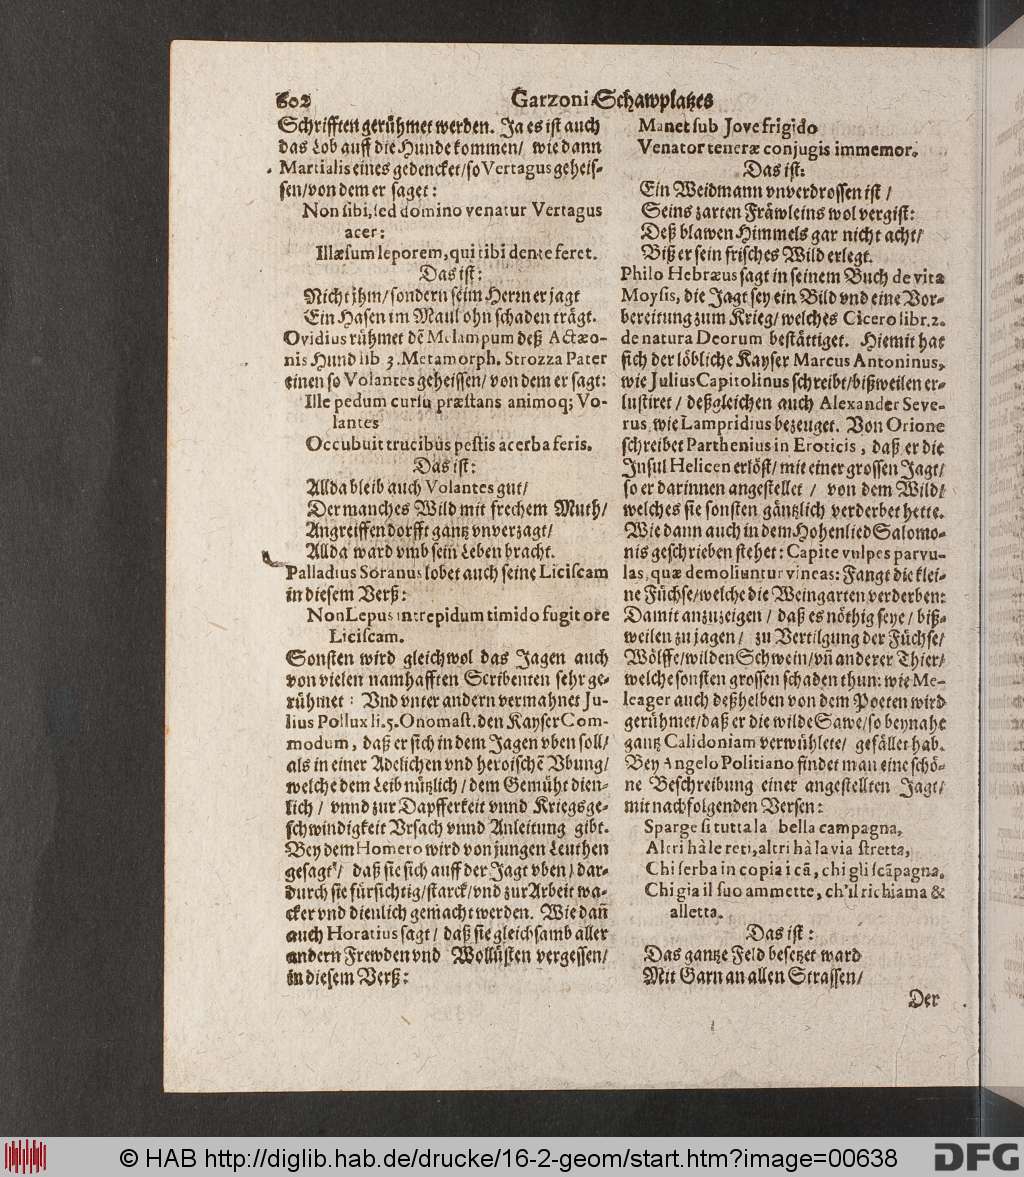 602
Garzoni Schawplatzes
Schrifften gerühmet werden. Ja es ist auch
das Lob auff die Hunde kommen/ wie dann
Martialis eines gedencket/ so Vertagus geheis-
sen/ von dem er saget:
Non sibi, sed domino venatur Vertagus
acer:
Illæsum leporem, qui tibi dente feret.
Das ist:
Nicht jhm/ sondern seim Herrn er jagt
Ein Hasen im Maul ohn schaden trägt.
Ovidius rühmet dē Melampum deß Actæo-
nis Hund lib 3. Metamorph. Strozza Pater
einen so Volantes geheissen/ von dem er sagt:
Ille pedum cursu præstans animoq; Vo-
lantes
Occubuit trucibus pestis acerba feris.
Das ist:
Allda bleib auch Volantes gut/
Der manches Wild mit frechem Muth/
Angreiffen dorfft gantz vnverzagt/
Allda ward vmb sein Leben bracht.
Palladius Soranus lobet auch seine Liciscam
in diesem Verß:
Non Lepus intrepidum timido fugit ore
Liciscam.
Sonsten wird gleichwol das Jagen auch
von vielen namhafften Scribenten sehr ge-
rühmet: Vnd vnter andern vermahnet Ju-
lius Pollux li. 5. Onomast. den Kayser Com-
modum, daß er sich in dem Jagen vben soll/
als in einer Adelichen vnd heroischē Vbung/
welche dem Leib nützlich/ dem Gemüht dien-
lich/ vnnd zur Dapfferkeit vnnd Kriegsge-
schwindigkeit Vrsach vnnd Anleitung gibt.
Bey dem Homero wird von jungen Leuthen
gesagt/ daß sie sich auff der Jagt vben/ dar-
durch sie fürsichtig/ starck/ vnd zur Arbeit wa-
cker vnd dienlich gemacht werden. Wie dañ
auch Horatius sagt/ daß sie gleichsamb aller
andern Frewden vnd Wollüsten vergessen/
in diesem Verß:
Manet sub Jove frigido
Venator teneræ conjugis immemor.
Das ist:
Ein Weidmann vnverdrossen ist/
Seins zarten Fräwleins wol vergist:
Deß blawen Himmels gar nicht acht/
Biß er sein frisches Wild erlegt.
Philo Hebræus sagt in seinem Buch de vita
Moysis, die Jagt sey ein Bild vnd eine Vor-
bereitung zum Krieg/ welches Cicero libr. 2.
de natura Deorum bestättiget. Hiemit hat
sich der löbliche Kayser Marcus Antoninus,
wie Julius Capitolinus schreibt/ bißweilen er-
lustiret/ deßgleichen auch Alexander Seve-
rus, wie Lampridius bezeuget. Von Orione
schreibet Parthenius in Eroticis, daß er die
Insul Helicen erlöst/ mit einer grossen Jagt/
so er darinnen angestellet/ von dem Wild/
welches sie sonsten gäntzlich verderbet hette.
Wie dann auch in dem Hohenlied Salomo-
nis geschrieben stehet: Capite vulpes parvu-
las, quæ demoliuntur vineas: Fangt die klei-
ne Füchse/ welche die Weingarten verderben:
Damit anzuzeigen/ daß es nöthig seye/ biß-
weilen zu jagen/ zu Vertilgung der Füchse/
Wölffe/ wilden Schwein/ vñ anderer Thier/
welche sonsten grossen schaden thun: wie Me-
leager auch deßhelben von dem Poeten wird
gerühmet/ daß er die wilde Sawe/ so beynahe
gantz Calidoniam verwühlete/ gefället hab.
Bey Angelo Politiano findet man eine schö-
ne Beschreibung einer angestellten Jagt/
mit nachfolgenden Versen:
Sparge si tutta la bella campagna,
Altri hà le reti, altri hà la via stretta,
Chi serba in copia i cā, chi gli scāpagna,
Chi gia il suo ammette, ch'il richiama &
alletta.
Das ist:
Das gantze Feld besetzet ward
Mit Garn an allen Strassen/
Der
© HAB http://diglib.hab.de/drucke/16-2-geom/start.htm?image=00638
DFG